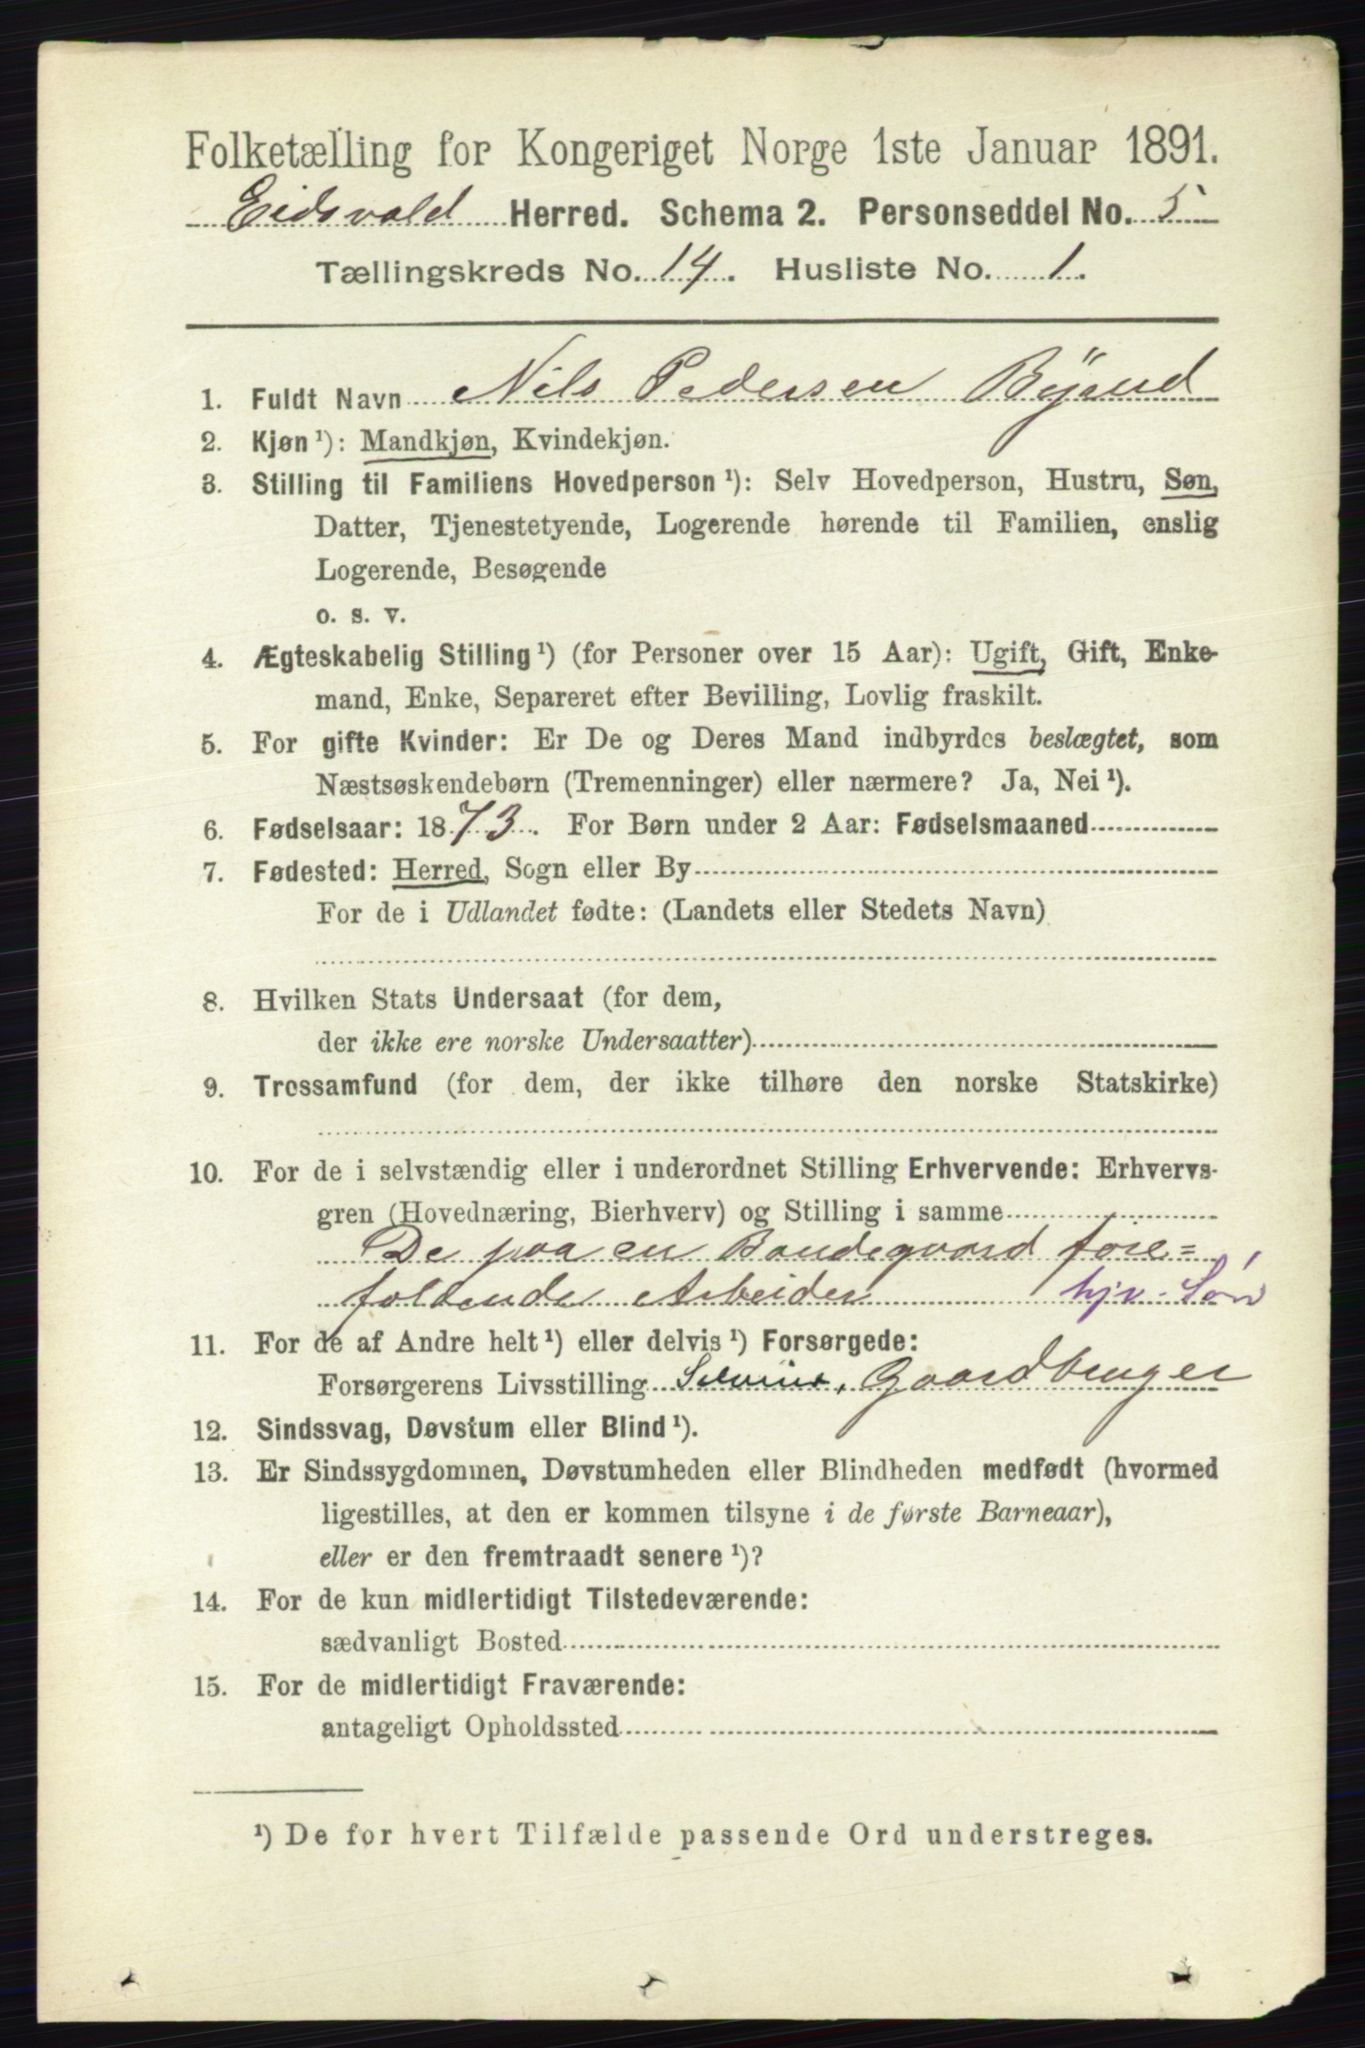 Folketælling for Kongeriget Norge 1ste Januar 1891.
Eidsvold Herred. Schema 2. Personseddel No. 5
Tællingskreds No. 14. Husliste No. 1.
1. Fuldt Navn Nils Pedersen Bÿrud
2. Kjøn ¹): Mandkjøn, Kvindekjøn.
3. Stilling til Familiens Hovedperson ¹): Selv Hovedperson, Hustru, Søn,
Datter, Tjenestetyende, Logerende hørende til Familien, enslig
Logerende, Besøgende
o. s. v.
4. Ægteskabelig Stilling ¹) (for Personer over 15 Aar): Ugift, Gift, Enke-
mand, Enke, Separeret efter Bevilling, Lovlig fraskilt.
5. For gifte Kvinder: Er De og Deres Mand indbyrdes beslægtet, som
Næstsøskendebørn (Tremenninger) eller nærmere? Ja, Nei ¹).
6. Fødselsaar: 1873. For Børn under 2 Aar: Fødselsmaaned
7. Fødested: Herred, Sogn eller By
For de i Udlandet fødte: (Landets eller Stedets Navn)
8. Hvilken Stats Undersaat (for dem,
der ikke ere norske Undersaatter)
9. Trossamfund (for dem, der ikke tilhøre den norske Statskirke)
10. For de i selvstændig eller i underordnet Stilling Erhvervende: Erhvervs-
gren (Hovednæring, Bierhverv) og Stilling i samme
De paa en Bondegaard fore=
faldende Arbeider hjv. Søn
11. For de af Andre helt ¹) eller delvis ¹) Forsørgede:
Forsørgerens Livsstilling Selveier, Gaardbruger
12. Sindssvag, Døvstum eller Blind ¹).
13. Er Sindssygdommen, Døvstumheden eller Blindheden medfødt (hvormed
ligestilles, at den er kommen tilsyne i de første Barneaar),
eller er den fremtraadt senere ¹)?
14. For de kun midlertidigt Tilstedeværende:
sædvanligt Bosted
15. For de midlertidigt Fraværende:
antageligt Opholdssted
¹) De for hvert Tilfælde passende Ord understreges.